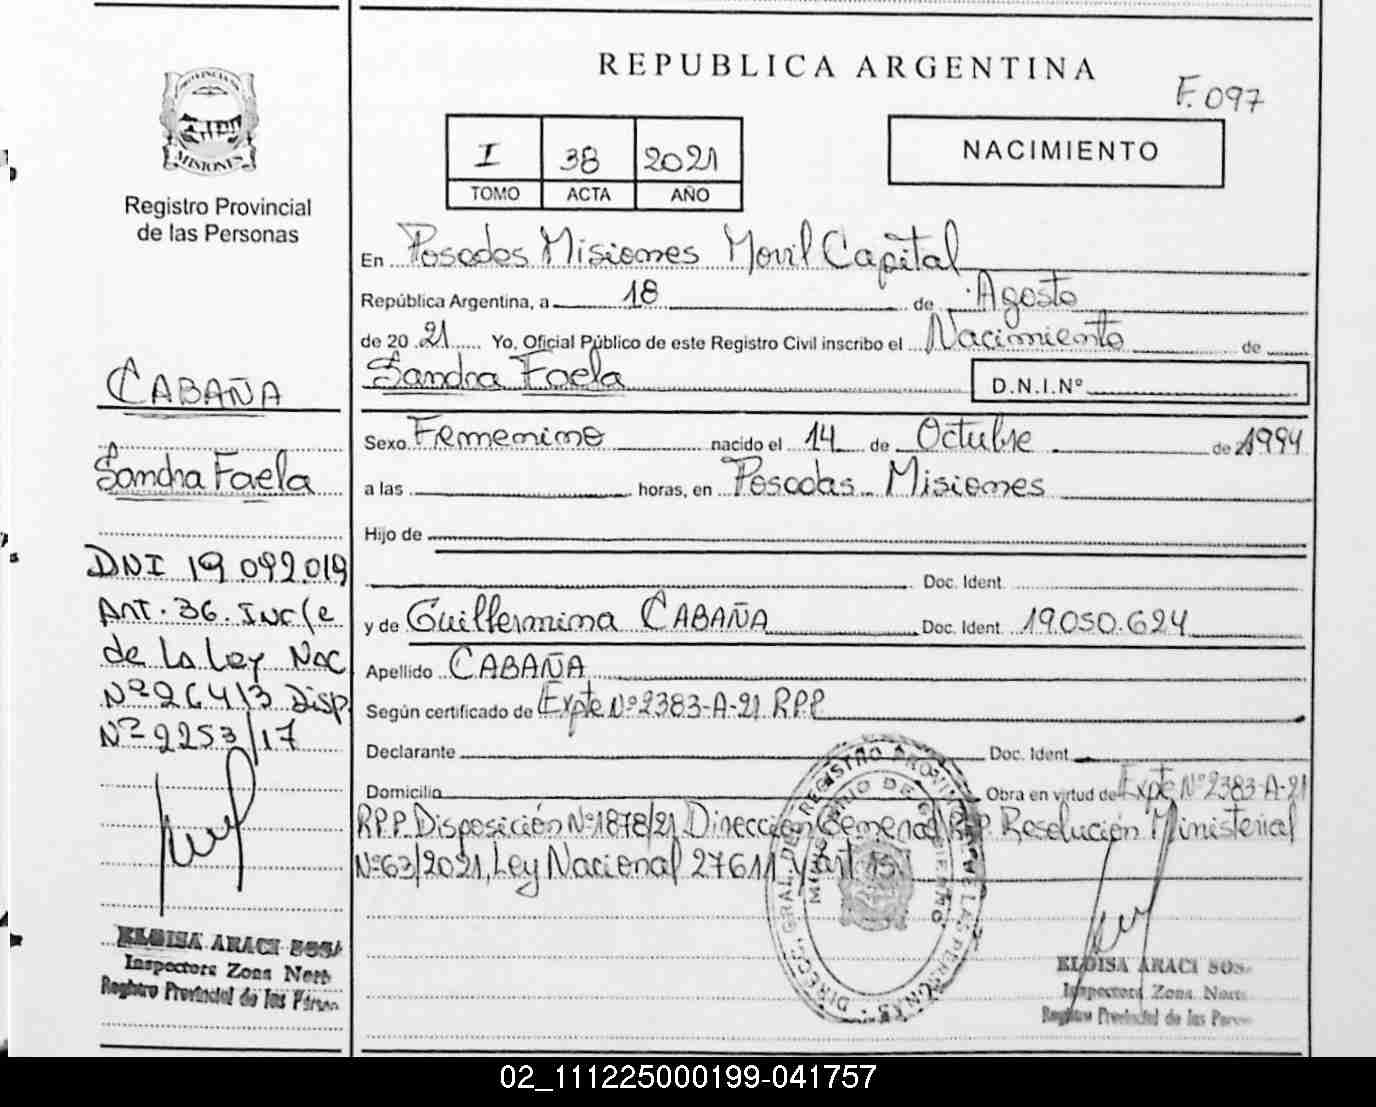 REPUBLICA ARGENTINA
F. 097
PROVINCIA DE
MISIONES
Registro Provincial
de las Personas
I 38 2021
TOMO ACTA AÑO
NACIMIENTO
En Posadas Misiones Movil Capital
República Argentina, a 18 de Agosto
de 20 21 Yo, Oficial Público de este Registro Civil inscribo el Nacimiento de
Sandra Faela D.N.I.Nº
Sexo Femenino nacido el 14 de Octubre de 1994
a las horas, en Posadas Misiones
Hijo de
Doc. Ident.
y de Guillermina CABAÑA Doc. Ident 19.050.624
Apellido CABAÑA
Según certificado de Expte Nº2383-A-21 RPP
Declarante Doc. Ident
Domicilio Obra en virtud de Expte Nº2383-A-21
R.P.P. Disposición Nº1878/21 Dirección General R.P.P. Resolución Ministerial
Nº63/2021, Ley Nacional 27611 y art 15.
CABAÑA
Sandra Faela
DNI 19.092.019
Art. 36. Inc/e
de La Ley Nac
Nº26413 Disp
Nº2253/17
ELOISA ARACI SOSA
Inspectora Zona Norte
Registro Provincial de las Person
ELOISA ARACI SOS
Inspectora Zona Norte
Registro Provincial de las Person
DIRECC. GRAL. DEL REGISTRO PROVINCIAL DE LAS PERSONAS
MINISTERIO DE GOBIERNO
02_111225000199-041757